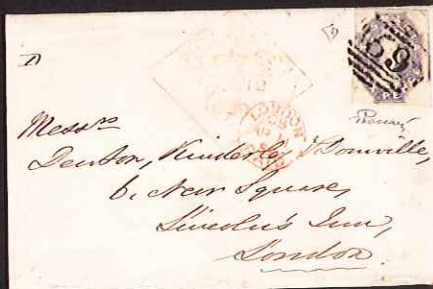 Messrs
Denton, Kinderley & Domville,
6, New Square,
Lincoln's Inn,
London.
LONDON